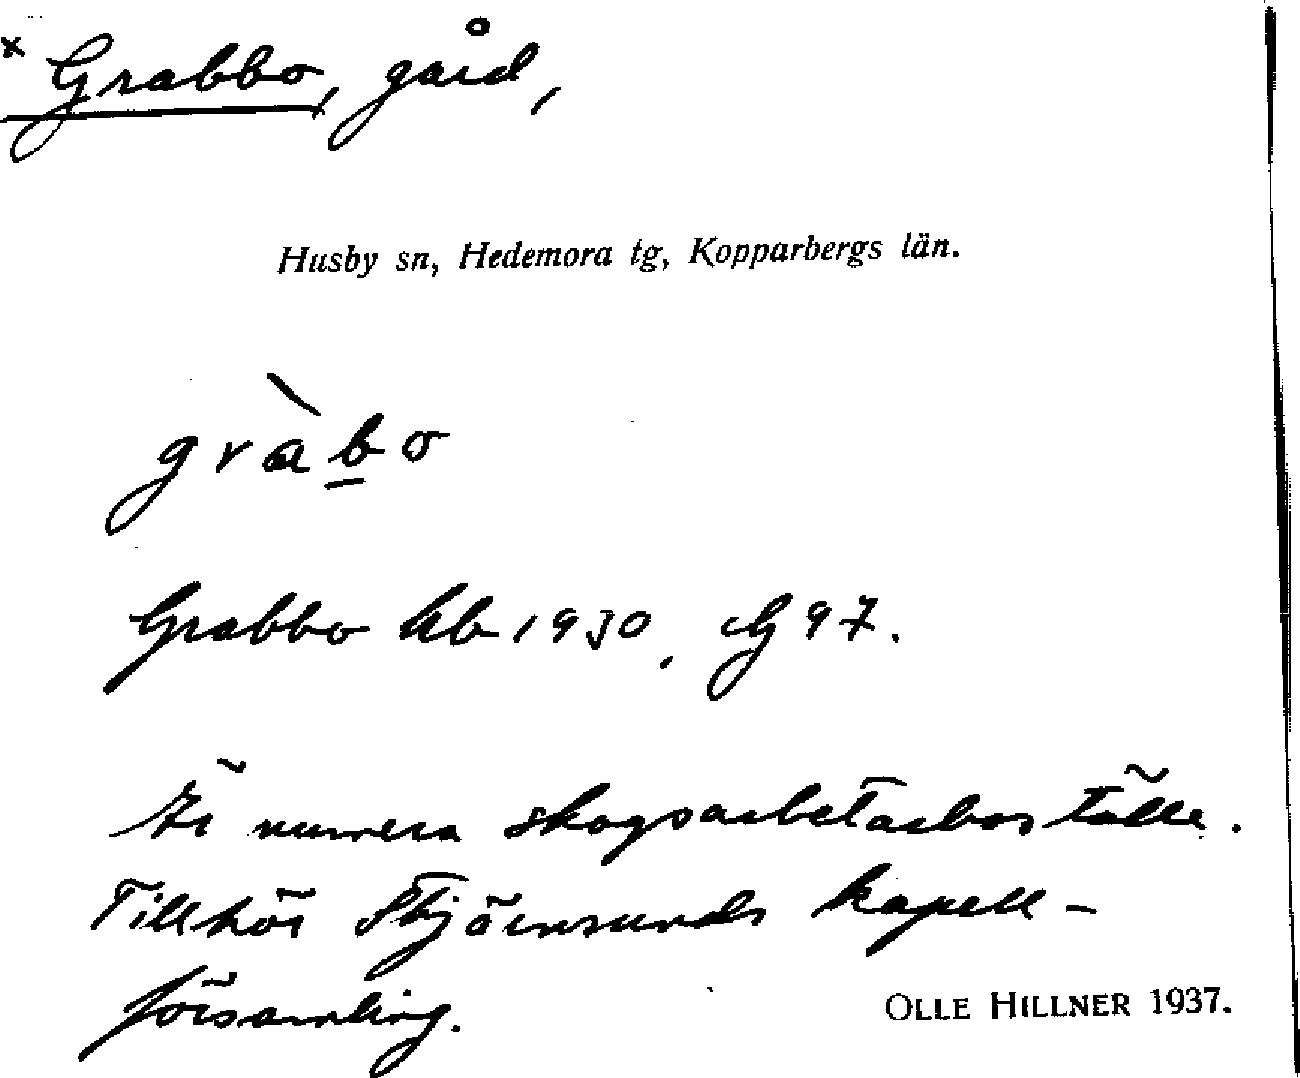 × Grabbo, gård,
Husby sn, Hedemora tg, Kopparbergs län.
gràb̲o
Grabbo kb 1930, G 97.
Är numera skogsarbetarboställe.
Tillhör Stjärnsunds kapell-
församling.
OLLE HILLNER 1937.